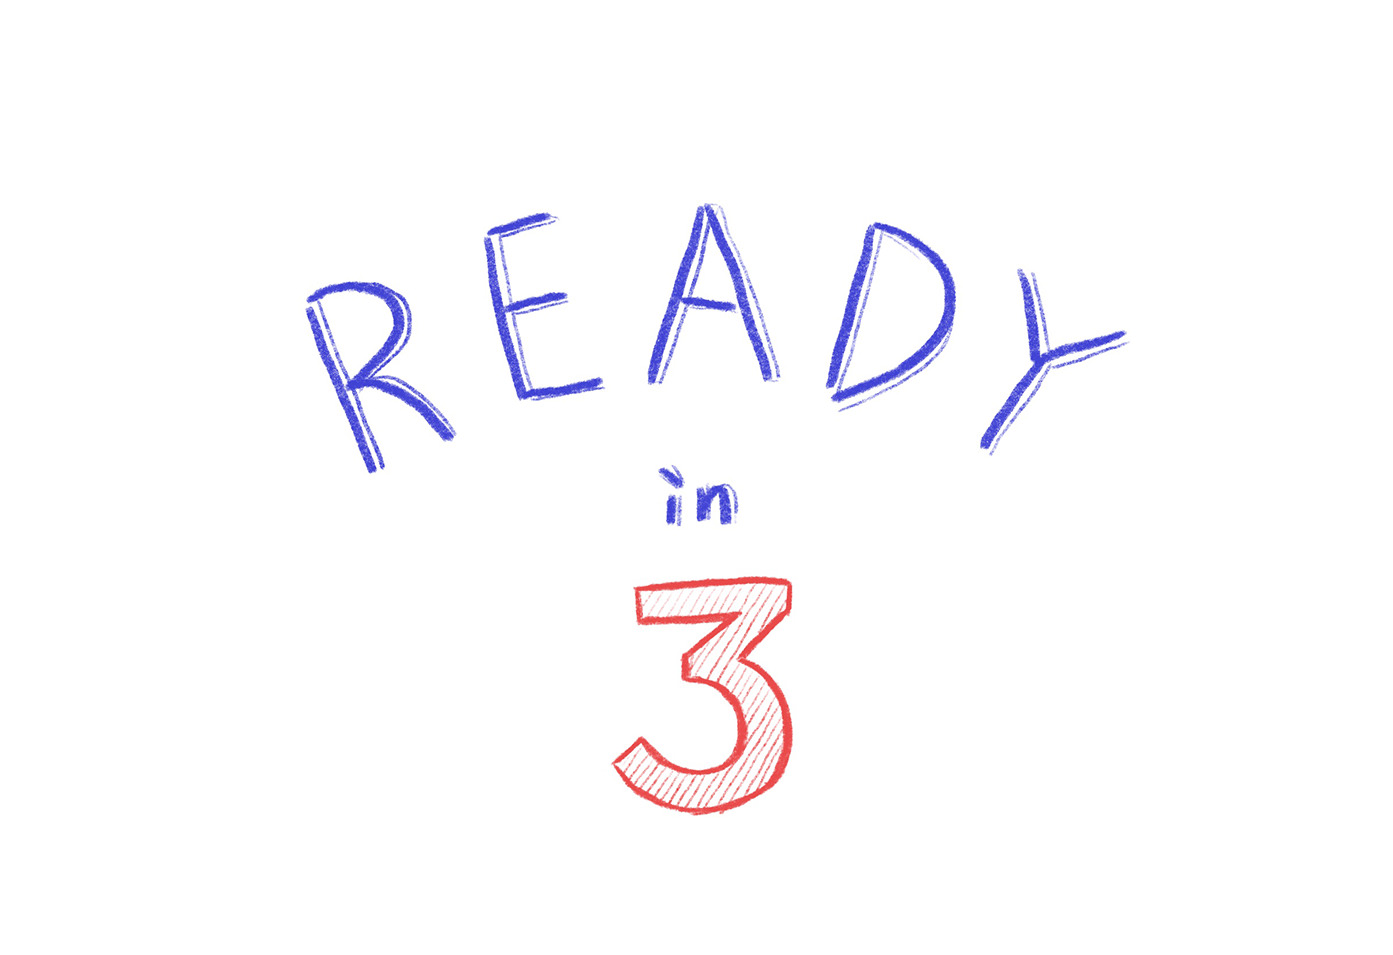 READY
in
3